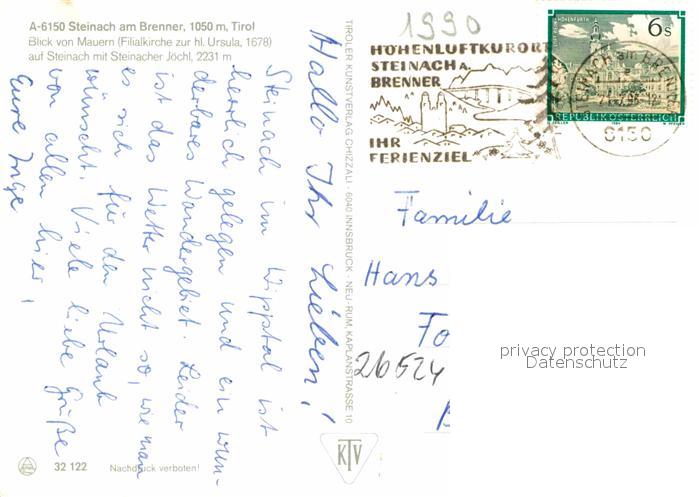 A-6150 Steinach am Brenner, 1050 m, Tirol
Blick von Mauern (Filialkirche zur hl. Ursula, 1678)
auf Steinach mit Steinacher Jöchl, 2231 m
Hallo Ihr Lieben!
Steinach im Wipptal ist
herrlich gelegen und ein wun-
derbares Wandergebiet. Leider
ist das Wetter nicht so, wie man
es sich für den Urlaub
wünscht. Viele liebe Grüße
von allen hier,
Eure Inge
32 122
Nachdruck verboten!
TIROLER KUNSTVERLAG CHIZZALI · 6040 INNSBRUCK - NEU-RUM, KAPLANSTRASSE 10
KTV
1990
HÖHENLUFTKURORT
STEINACH A.
BRENNER
IHR
FERIENZIEL
6 S
REPUBLIK ÖSTERREICH
STEINACH am BRENNER
6150
Familie
Hans
Fo
26524
privacy protection
Datenschutz